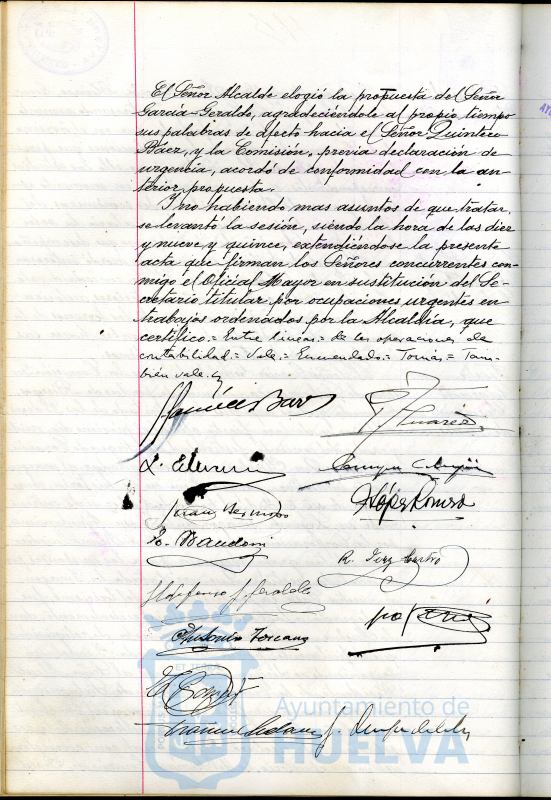 El Señor Alcalde elogió la propuesta del Señor
García-Geraldo, agradeciéndole al propio tiempo
sus palabras de afecto hacia el Señor Quintero
Báez, y la Comisión, previa declaración de
urgencia, acordó de conformidad con la an-
terior propuesta.
Y no habiendo mas asuntos de que tratar,
se levantó la sesión, siendo la hora de las diez
y nueve y quince, extendiéndose la presente
acta que firman los Señores concurrentes con-
migo el Oficial Mayor en sustitución del Se-
cretario titular por ocupaciones urgentes en
trabajos ordenados por la Alcaldía, que
certifico.= Entre líneas = de las operaciones de
contabilidad = Vale.= Enmendado = Tomás = Tam-
bién vale.
Suárez
Juan Bermudo
López Romero
R.
Ildefonso G. Geraldo
Antonio Toscano
Ayuntamiento de
HUELVA